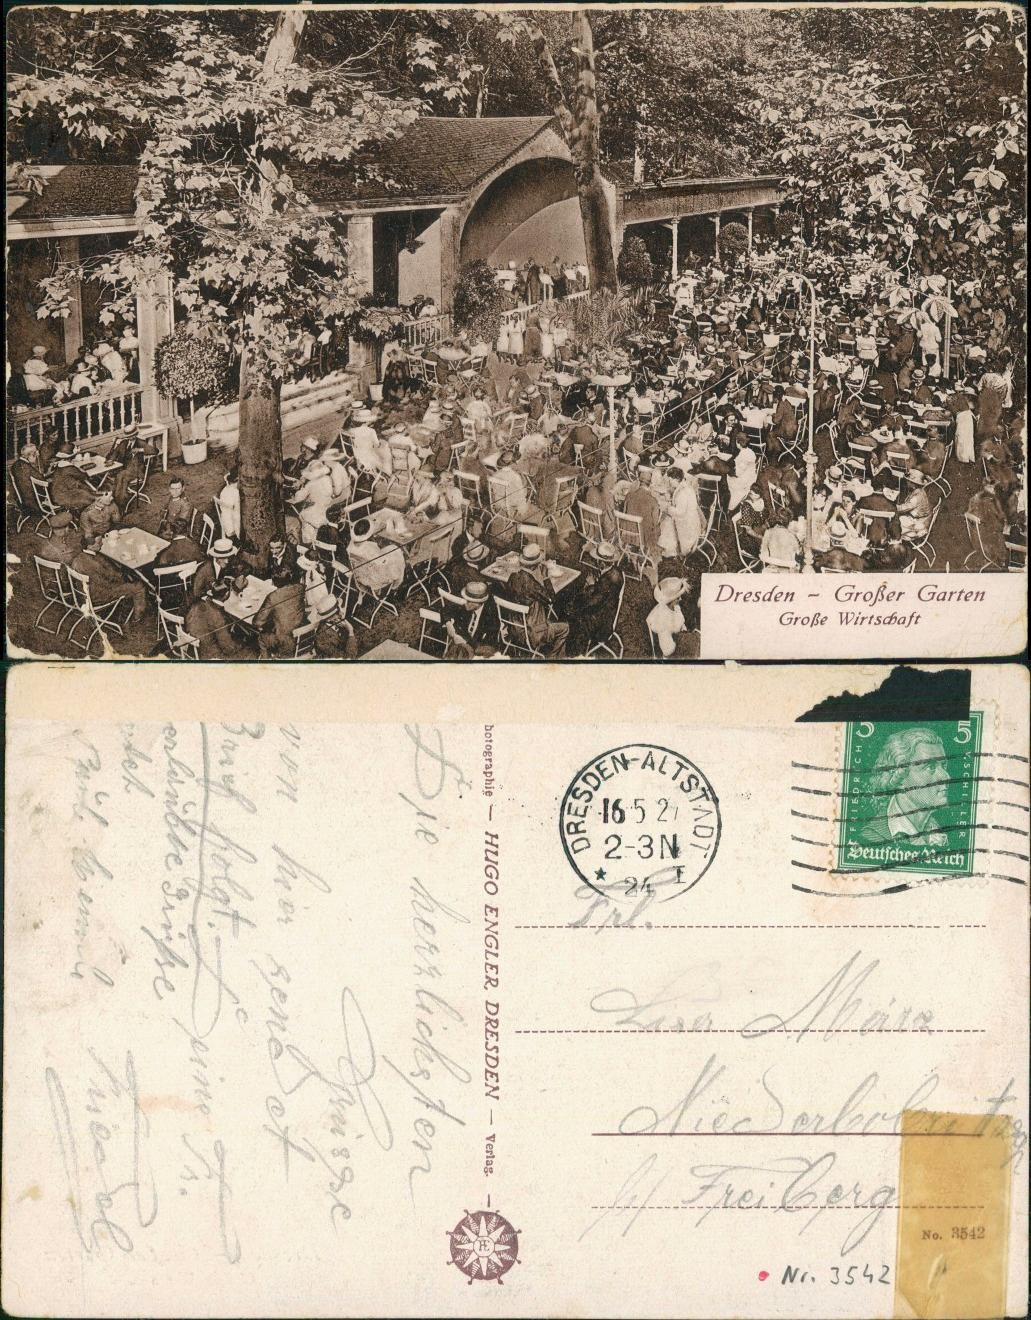 Dresden – Großer Garten
Große Wirtschaft
Die herzlichsten
Grüsse
von hier sendet
Deine Fr.
Brief folgt.
No. 3542
Nr. 3542
hotographie — HUGO ENGLER, DRESDEN — Verlag.
HE
DRESDEN-ALTSTADT
16 5 27
2-3N
* 24 I
5 5
FRIEDRICH V. SCHILLER
Deutsches Reich
Frl.
Niederbobritzsch
b/ Freiberg